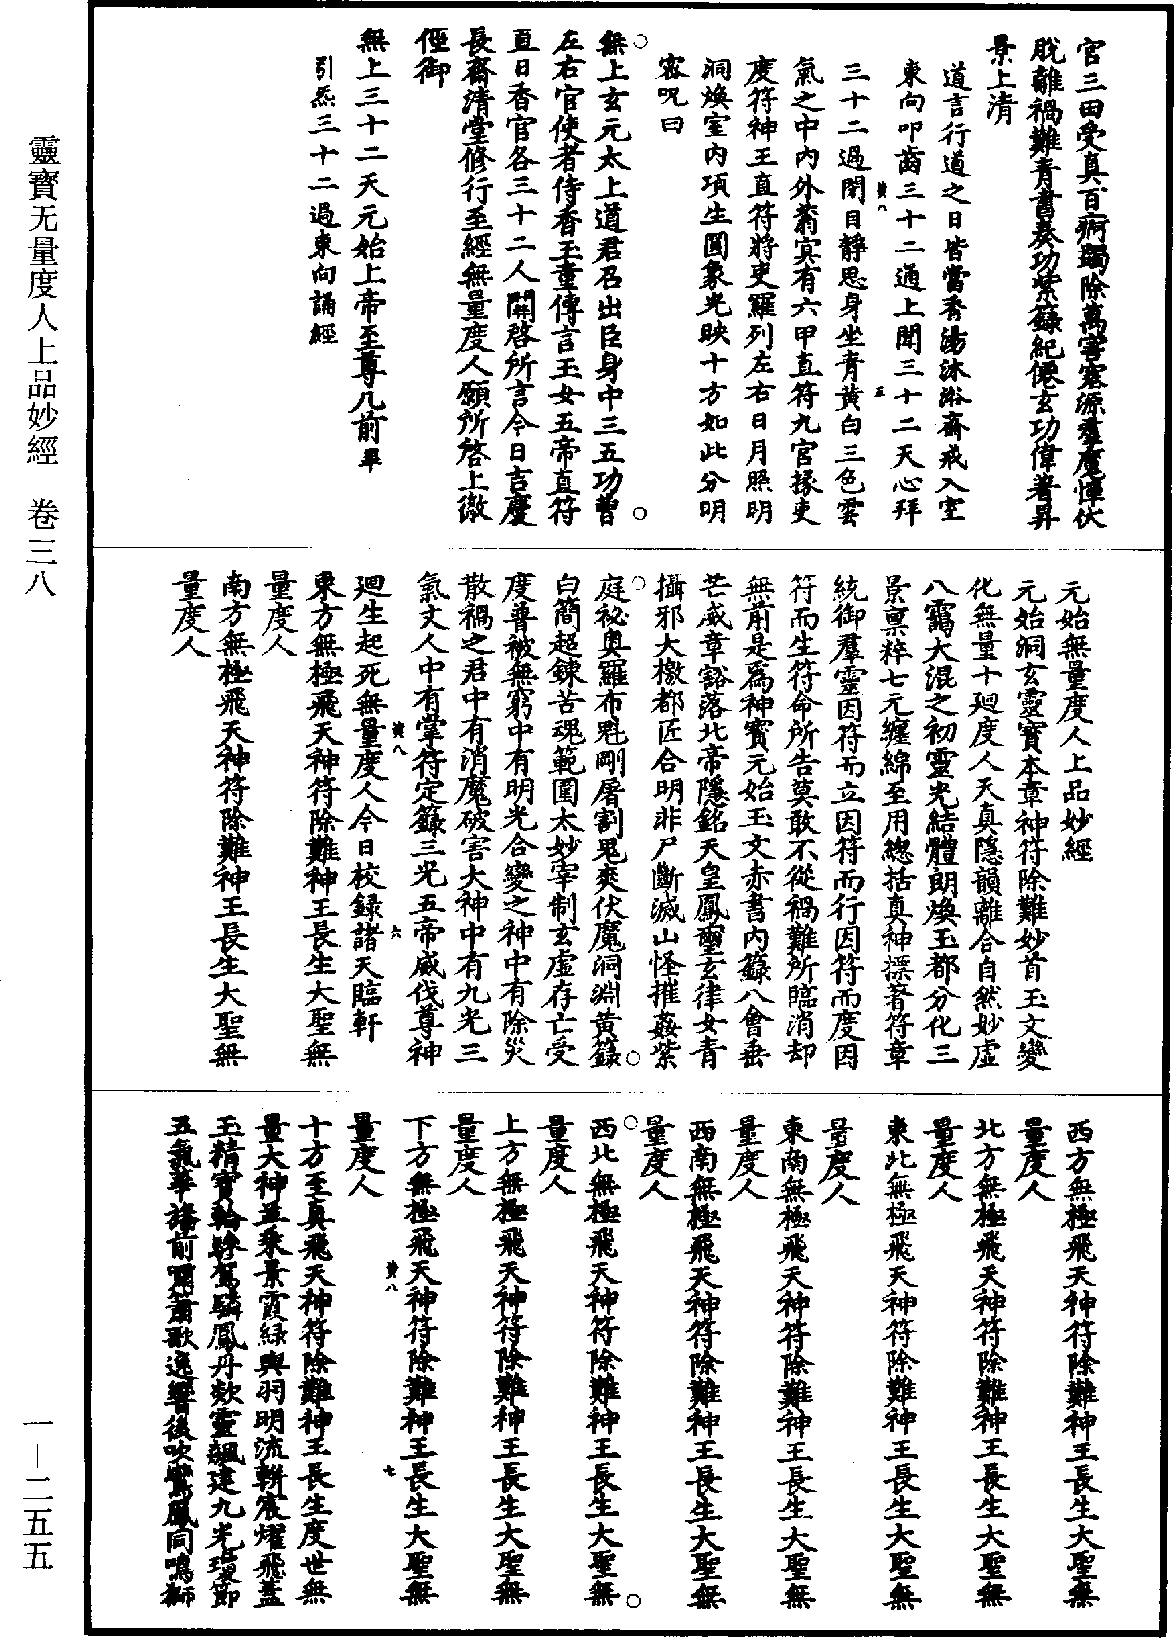 官三田受真百痾蠲除萬害塞源羣魔憚伏
脫離禍難青書奏功紫籙紀僊玄功偉著昇
景上清
道言行道之日皆當香湯沐浴齋戒入室
東向叩齒三十二通上聞三十二天心拜
三十二過閉目靜思身坐青黃白三色雲
氣之中內外蓊冥有六甲直符九宮掾吏
度符神王直符將吏羅列左右日月照明
洞煥室內項生圓象光映十方如此分明
密呪曰
無上玄元太上道君召出臣身中三五功曹
左右官使者侍香玉童傳言玉女五帝直符
直日香官各三十二人關啓所言今日吉慶
長齋清堂修行至經無量度人願所啓上徹
徑御
無上三十二天元始上帝至尊几前畢
引炁三十二過東向誦經
元始無量度人上品妙經
元始洞玄靈寶本章神符除難妙首玉文變
化無量十廻度人天真隱韻離合自然妙虛
八靄大混之初靈光結體朗煥玉都分化三
景稟粹七元纏綿至用總括真神摽著符章
統御羣靈因符而立因符而行因符而度因
符而生符命所告莫敢不從禍難所臨消却
無前是爲神寶元始玉文赤書內籙八會垂
芒威章豁落北帝隱銘天皇鳳璽玄律女青
攝邪大檄都匠合明非尸斷滅山怪摧姦紫
庭祕奧羅布魁剛屠割鬼爽伏魔洞淵黃籙
白簡超鍊苦魂範圍太妙宰制玄虛存亡受
度普被無窮中有明光合變之神中有除災
散禍之君中有消魔破害大神中有九光三
氣丈人中有掌符定籙三光五帝威伐尊神
廻生起死無量度人今日校錄諸天臨軒
東方無極飛天神符除難神王長生大聖無
量度人
南方無極飛天神符除難神王長生大聖無
量度人
西方無極飛天神符除難神王長生大聖無
量度人
北方無極飛天神符除難神王長生大聖無
量度人
東北無極飛天神符除難神王長生大聖無
量度人
東南無極飛天神符除難神王長生大聖無
量度人
西南無極飛天神符除難神王長生大聖無
量度人
西北無極飛天神符除難神王長生大聖無
量度人
上方無極飛天神符除難神王長生大聖無
量度人
下方無極飛天神符除難神王長生大聖無
量度人
十方至真飛天神符除難神王長生度世無
量大神並乘景霞綠輿羽明流軿宸燿飛蓋
玉精寶輪驂駕驎鳳丹欻靈飆建九光瓊節
五氣華旛前嘯簫歌逸響後吹鸞鳳同鳴獅
靈寶无量度人上品妙經 卷三八
一—二五五